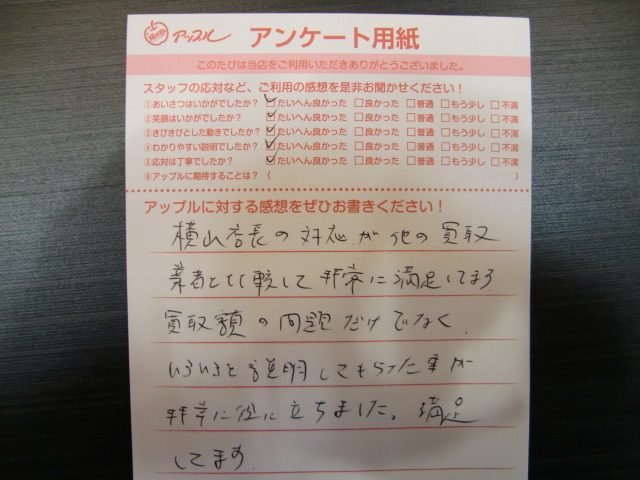 アップル アンケート用紙
このたびは当店をご利用いただきありがとうございました。
スタッフの応対など、ご利用の感想を是非お聞かせください！
①あいさつはいかがでしたか？ ☑たいへん良かった □良かった □普通 □もう少し □不満
②笑顔はいかがでしたか？ ☑たいへん良かった □良かった □普通 □もう少し □不満
③きびきびとした動きでしたか？ ☑たいへん良かった □良かった □普通 □もう少し □不満
④わかりやすい説明でしたか？ ☑たいへん良かった □良かった □普通 □もう少し □不満
⑤応対は丁寧でしたか？ ☑たいへん良かった □良かった □普通 □もう少し □不満
⑥アップルに期待することは？（ ）
アップルに対する感想をぜひお書きください！
横山店長の対応が他の買取
業者と比較して非常に満足してます
買取額の問題だけでなく、
いろいろと説明してもらった事が
非常に役に立ちました。満足
してます。